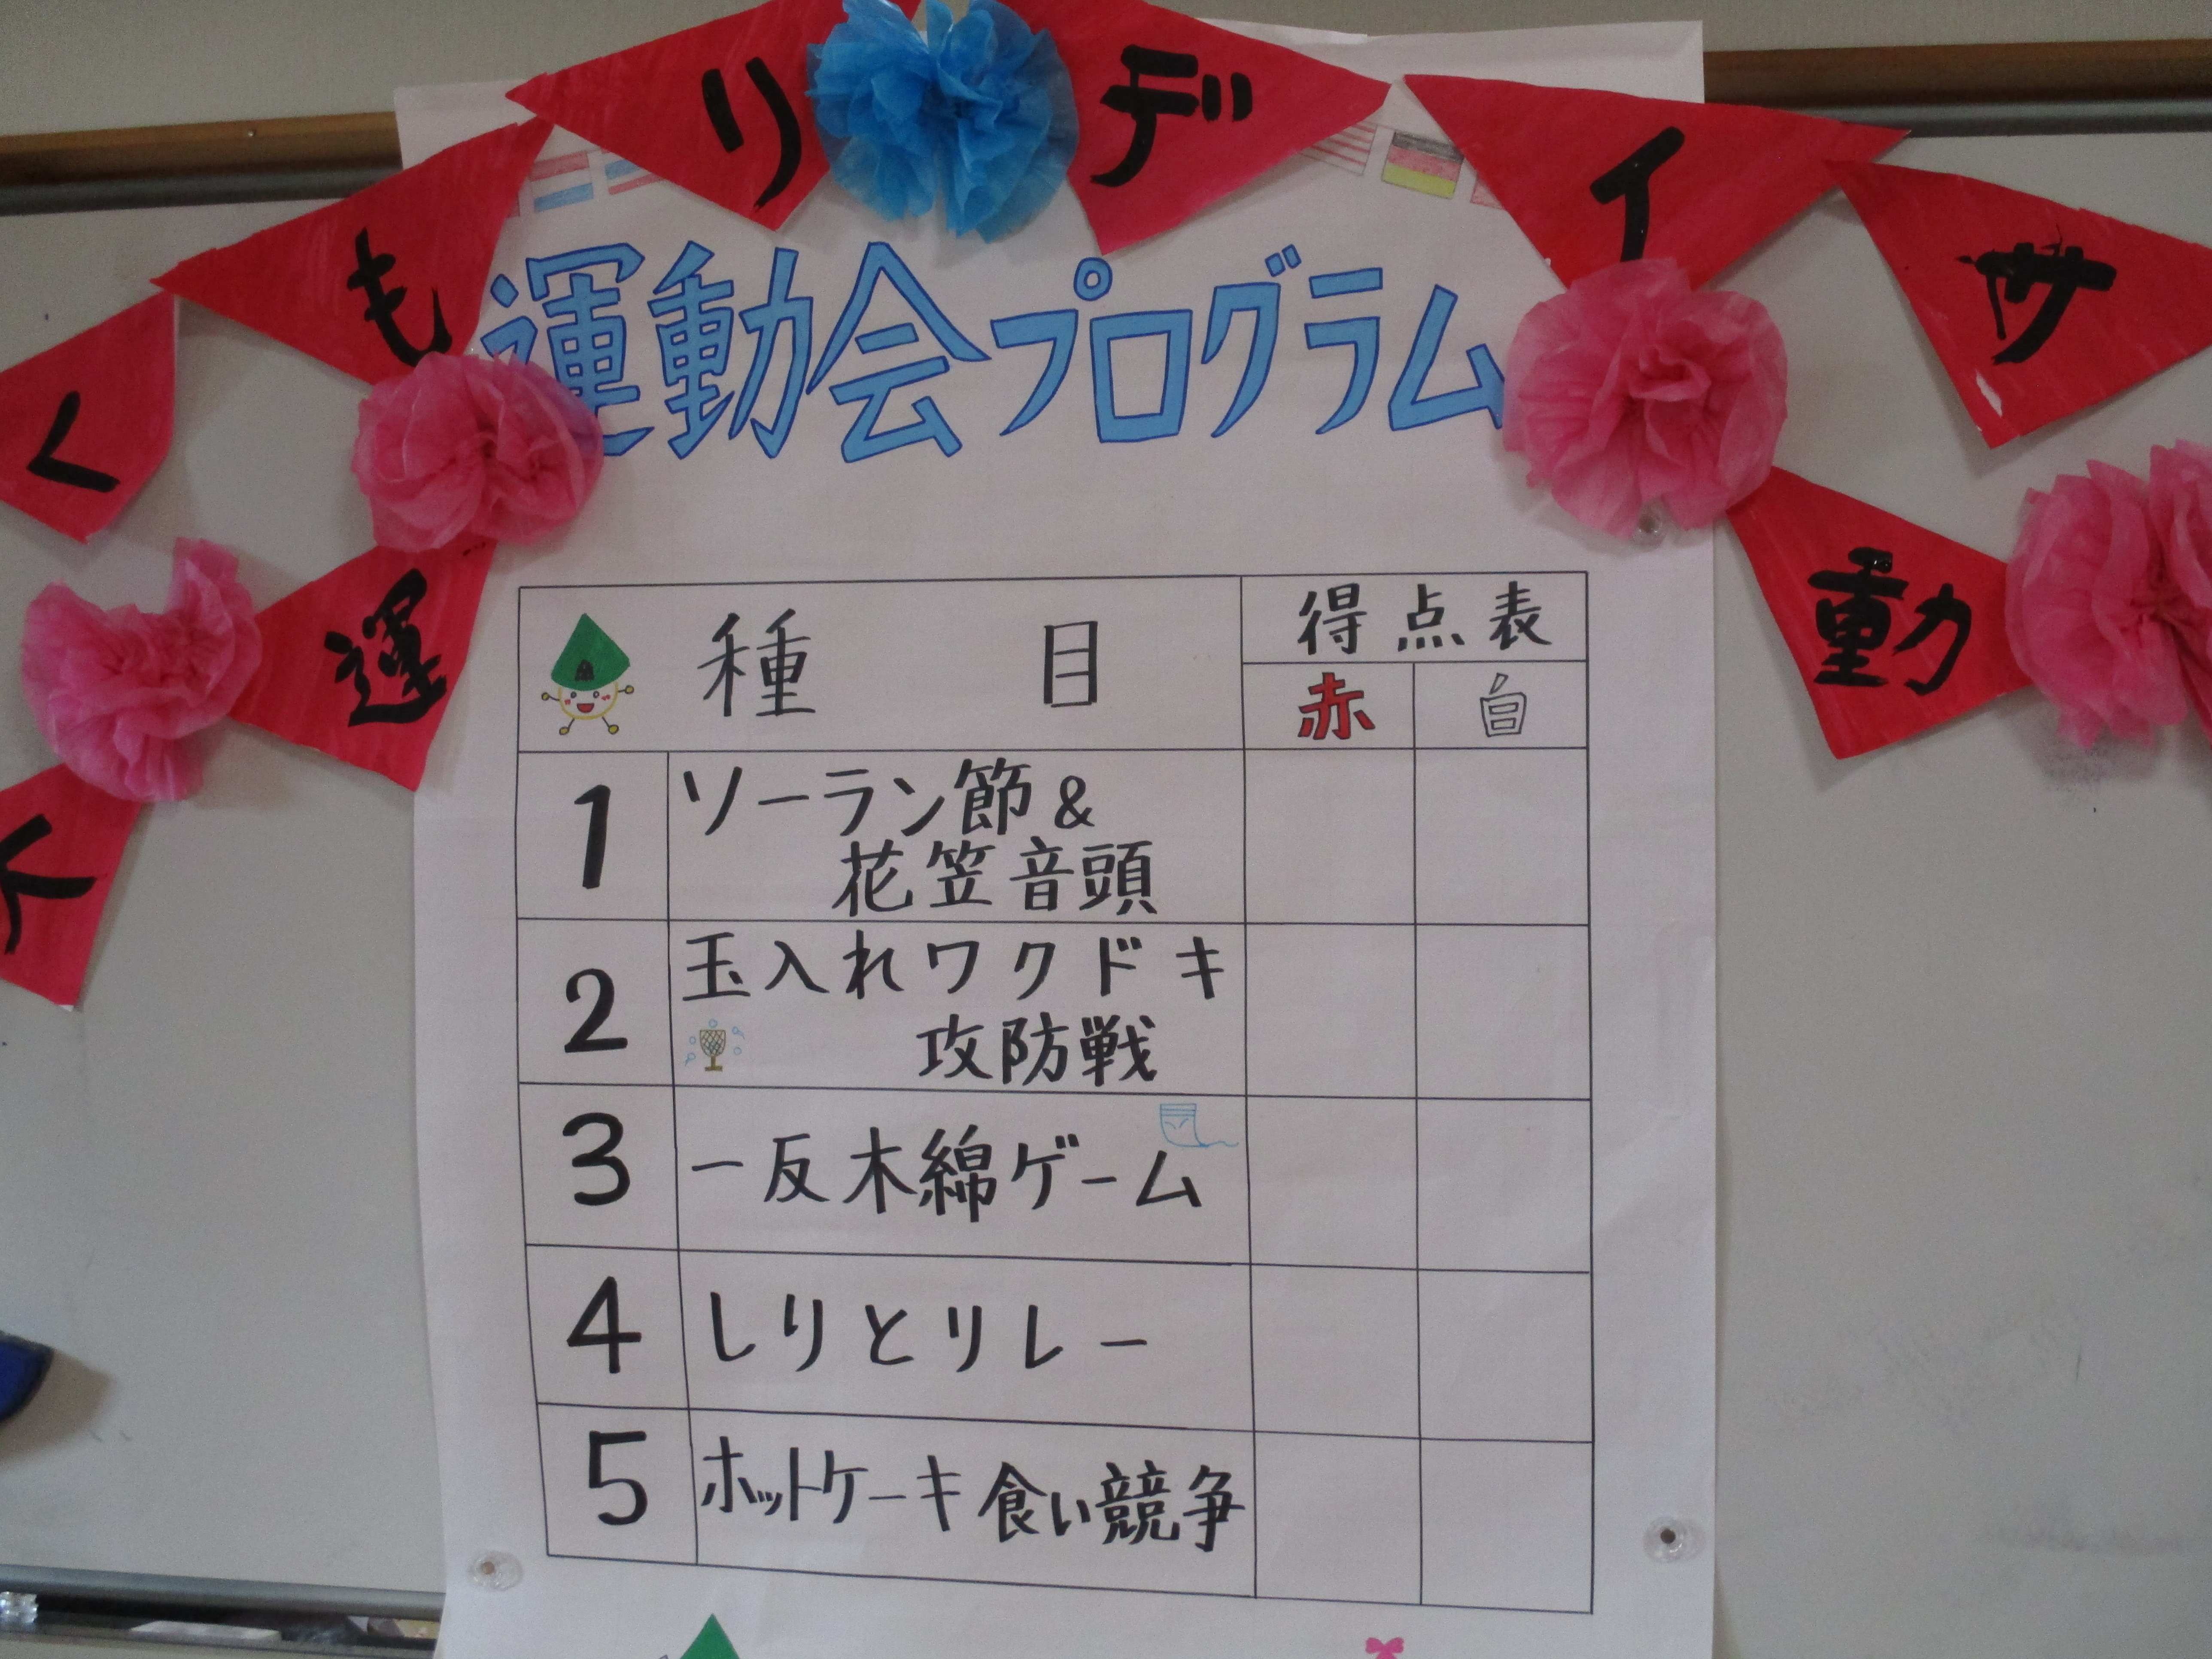 くもりデイサ
大運動
運動会プログラム
種目
得点表
赤 白
1 ソーラン節&
花笠音頭
2 玉入れワクドキ
攻防戦
3 一反木綿ゲーム
4 しりとリレー
5 ホットケーキ食い競争